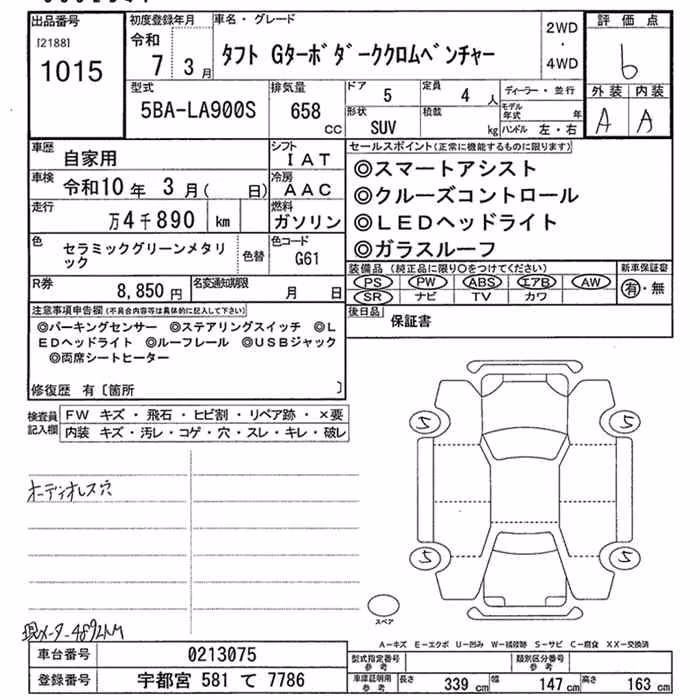 出品番号
[2188]
1015
初度登録年月
令和
7 3月
車名・グレード
タフト Gターボ ダーククロムベンチャー
2WD
・
4WD
評価点
6
外装 内装
A A
型式
5BA-LA900S
排気量
658
CC
ドア
5
定員
4 人
形状
SUV
積載
kg
ディーラー・並行
モデル年式 年
ハンドル 左・右
車歴 自家用
シフト
IAT
車検 令和10年 3月( 日)
冷房
AAC
走行 万4千890 km
燃料
ガソリン
色 セラミックグリーンメタリック
色替
色コード
G61
R券 8,850円
名変通知期限 月 日
セールスポイント(正常に機能するものに限ります)
◎スマートアシスト
◎クルーズコントロール
◎LEDヘッドライト
◎ガラスルーフ
装備品 (純正品に限り○をつけてください)
PS PW ABS エアB AW
SR ナビ TV カワ
新車保証書
有・無
後日品 保証書
注意事項申告欄(不具合内容等は具体的に記入して下さい)
◎パーキングセンサー ◎ステアリングスイッチ ◎L
EDヘッドライト ◎ルーフレール ◎USBジャック
◎両席シートヒーター
修復歴 有〔箇所 〕
検査員記入欄
FW キズ・飛石・ヒビ割・リペア跡・×要
内装 キズ・汚レ・コゲ・穴・スレ・キレ・破レ
オーディオレス穴
現メーター4892KM
5 5
5 5
スペア
A-キズ E-エクボ U-凹み W-補修跡 S-サビ C-腐食 XX-交換済
車台番号 0213075
登録番号 宇都宮 581 て 7786
型式指定番号
参考
類別区分番号
参考
車庫証明用
参考
長さ 339 cm
幅 147 cm
高さ 163 cm